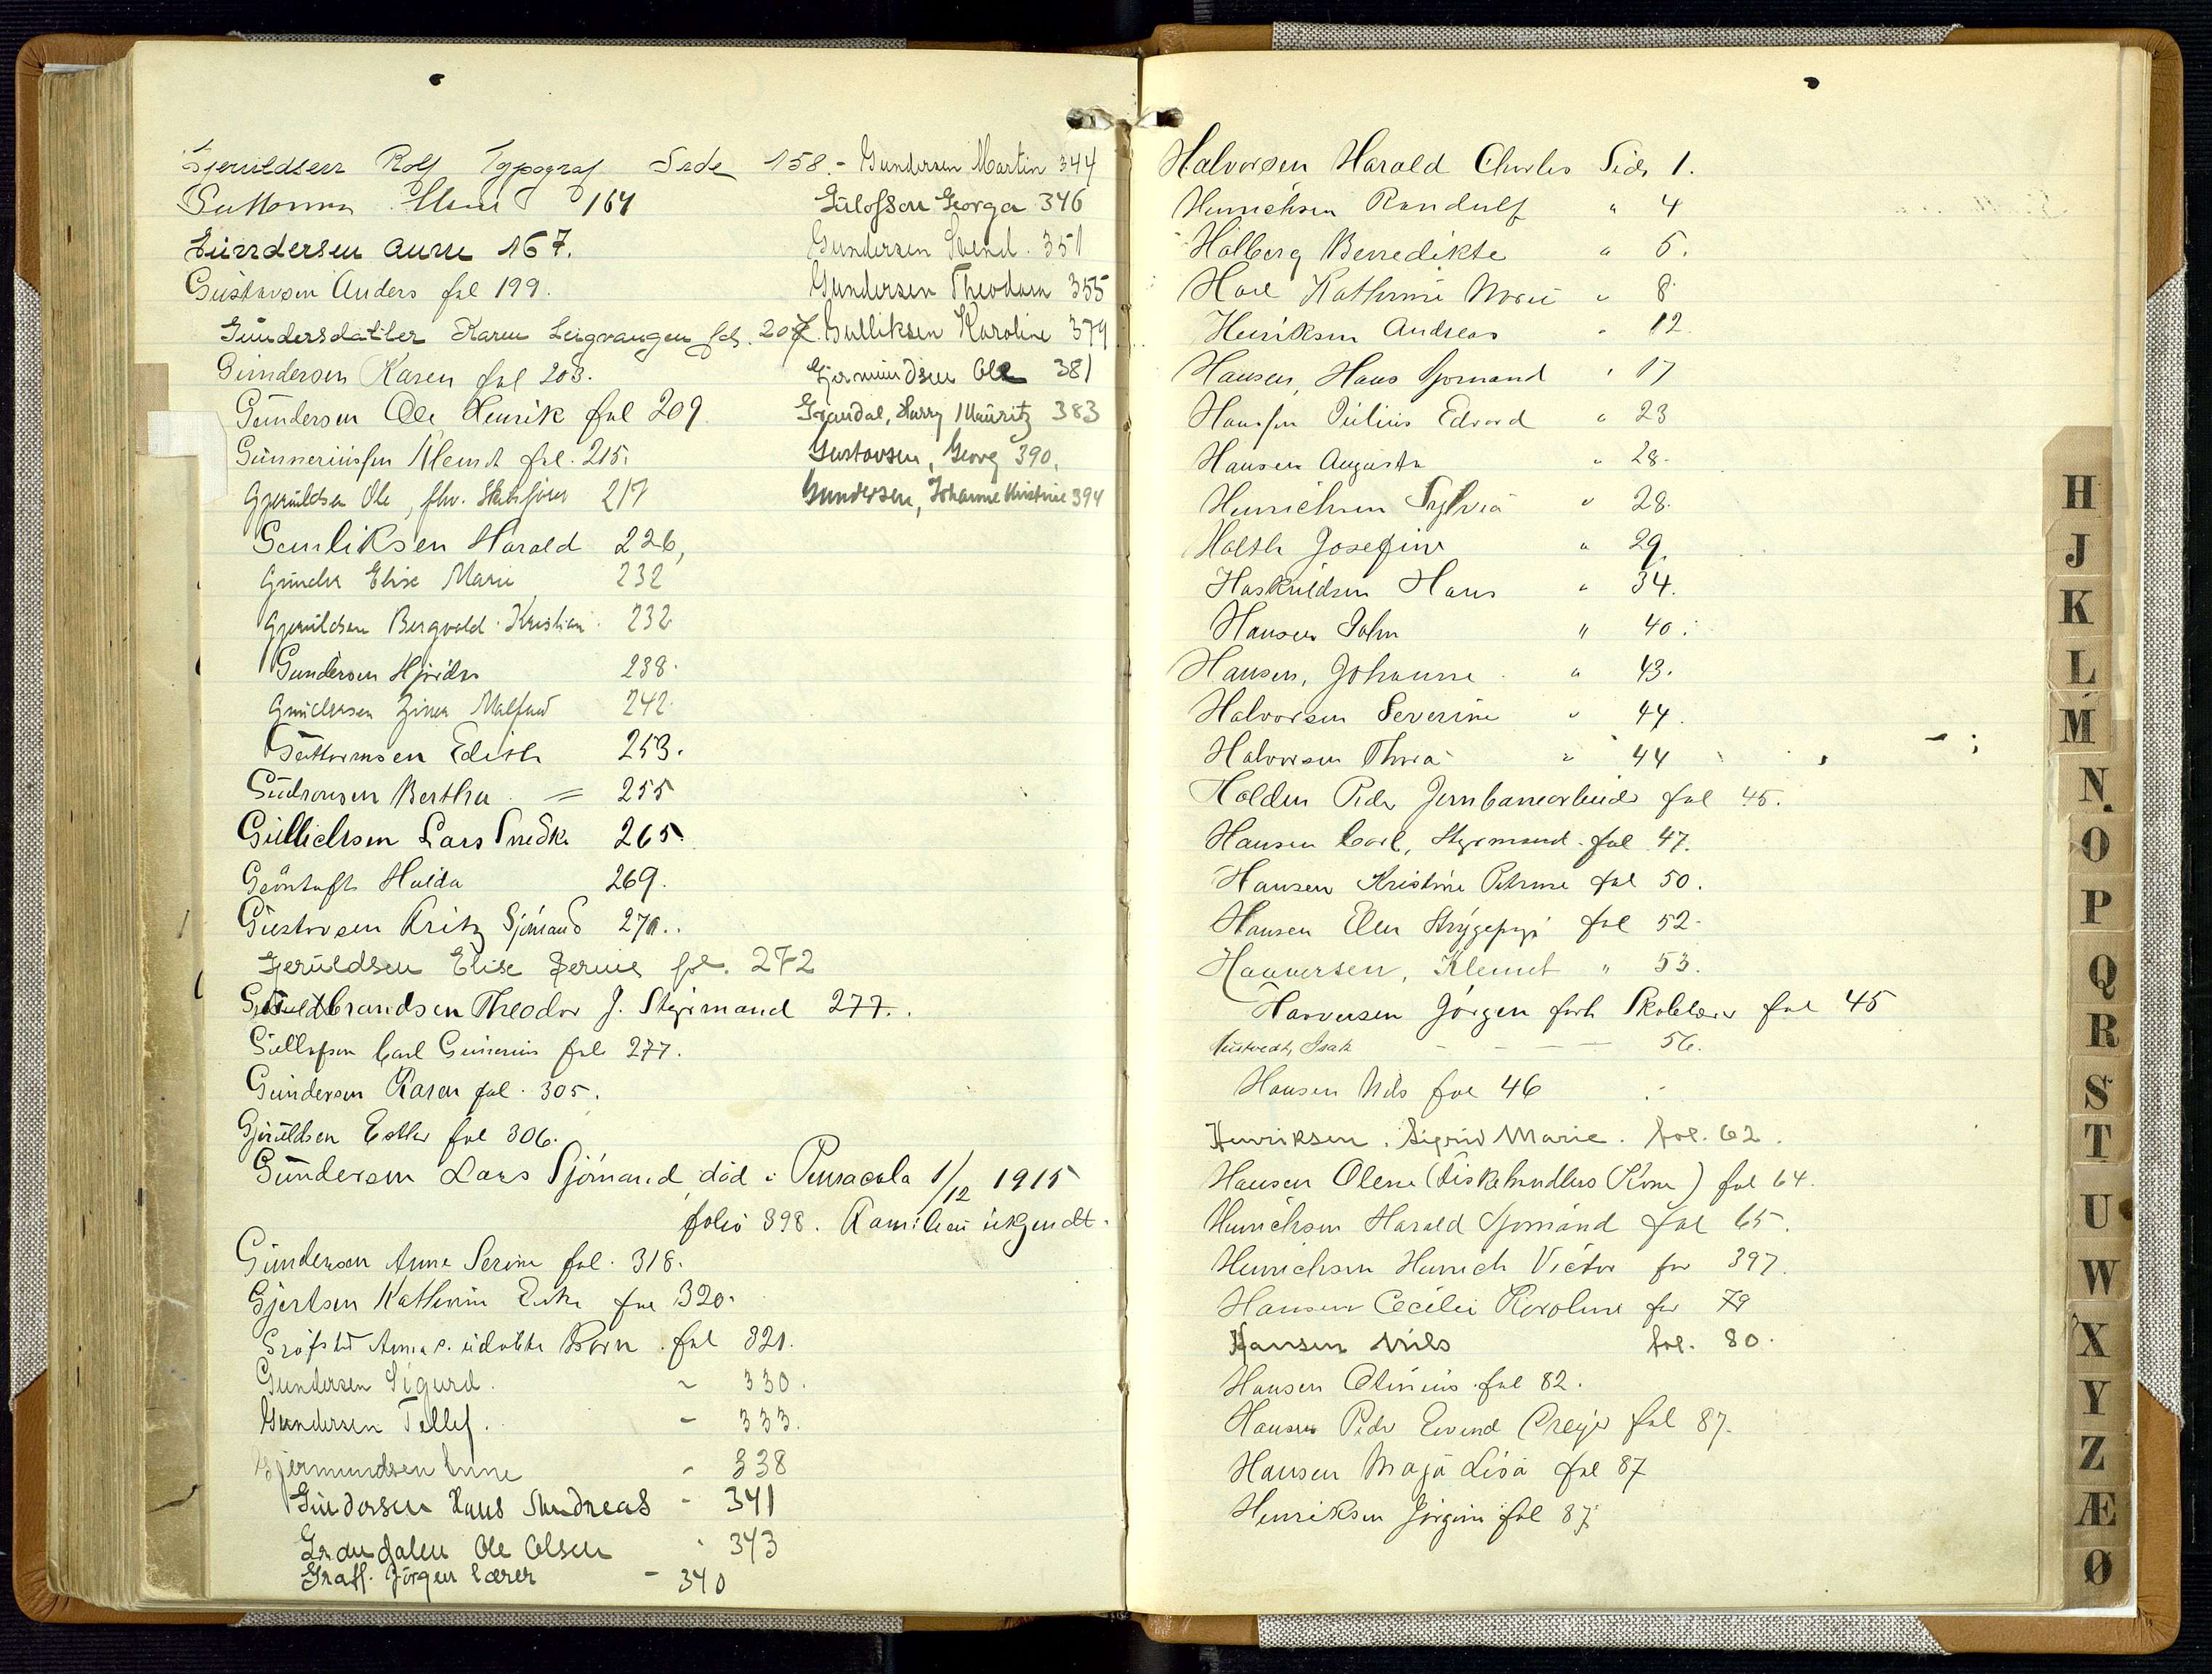 Gjeruldsen Rolf Typograf Side 158.-
Guttormsen 164
Gundersen Anne 167.
Gustavsen Anders fol 199.
Gundersdatter Karen Leigvangen fol. 207.
Gundersen Karen fol 203.
Gundersen Ole Henrik fol 209
Gunneriusen Klemet fol. 215.
Gjeruldsen Ole, fhv. 217
Gunliksen Harald 226,
Grunder Elise Marie 232
Gjeruldsen Bergvald Kristian 232
Gundersen Hjördis 238.
Gundersen Malfred 242
Guttormsen Edith 253.
Gudronsen Bertha = 255
Gullichsen Lars Snedk. 265.
Hulda 269.
Gustavsen Fritz Sjömand 270..
Gjeruldsen Elise fol. 272
Guldbrandsen Theodor J. Styrmand 277.
Gullofsen Carl Gunerius fol 277.
Gundersen Karen fol. 305.
Gjeruldsen Esther fol 306.
Gundersen Lars Sjömand, död i Pensacola 1/12 1915
folio 398. Familien ukjendt.
Gundersen Anne Serine fol. 318.
Gjertsen Kathrine Enke fol 320.
Anna S. udøbte Barn fol 321.
Gundersen Sigurd. ~ 330.
Gundersen Tellef. - 333.
Gjermundsen Anne - 338
Gundersen Hans Andreas - 341
Graudalen Ole Olsen 343
Graff. Jörgen Lærer - 340
Gundersen Martin 344
Gulofsen Georga 346
Gundersen Svend. 351
Gundersen Theodora 355
Gulliksen Karoline 379
Gjermundsen Ole 381
Graudal, Harry Mauritz 383
Gustavsen, Georg 390,
Gundersen, Johanne Kristine 394
Halvorsen Harald Charles Side 1.
Henrichsen Randulf " 4
Holberg Benedikte " 5.
Hall Kathrine Marie " 8
Henriksen Andreas " 12.
Hansen, Hans Sjomand " 17
Hansen Julius Edvard " 23
Hansen Augusta " 28.
Henrichsen Sylvia " 28.
Holth Josefine " 29.
Haskuldsen Hans " 34.
Hansen John " 40.
Hansen, Johanne " 43.
Halvorsen Severine " 44.
Halvorsen Thora " 44
Holden Peder Jernbanearbeider fol 45.
Hansen Carl, Styrmand fol 47.
Hansen Kristine Petrine fol 50.
Hansen Elen Strygepige fol 52.
Haaversen, Klemet " 53.
Haaversen Jörgen forh Skolelærer fol 45
Isak - - - 56.
Hansen Nils fol 46
Henriksen. Sigrid Marie. fol. 62.
Hansen Olene (Fiskehandlers Kone) fol 64.
Henrichsen Harald Sjomand fol 65.
Henrichsen Henrich Victor for 397.
Hansen Cecilie Karoline for 79
Hansen Nils fol. 80.
Hansen Olinius fol 82.
Hansen Peder Eivind Creyer fol 87.
Hansen Maja Lisa fol 87
Henriksen Jörgine fol 87
H
J
K
L
M
N
O
P
Q
R
S
T
U
W
X
Y
Z
Æ
Ø